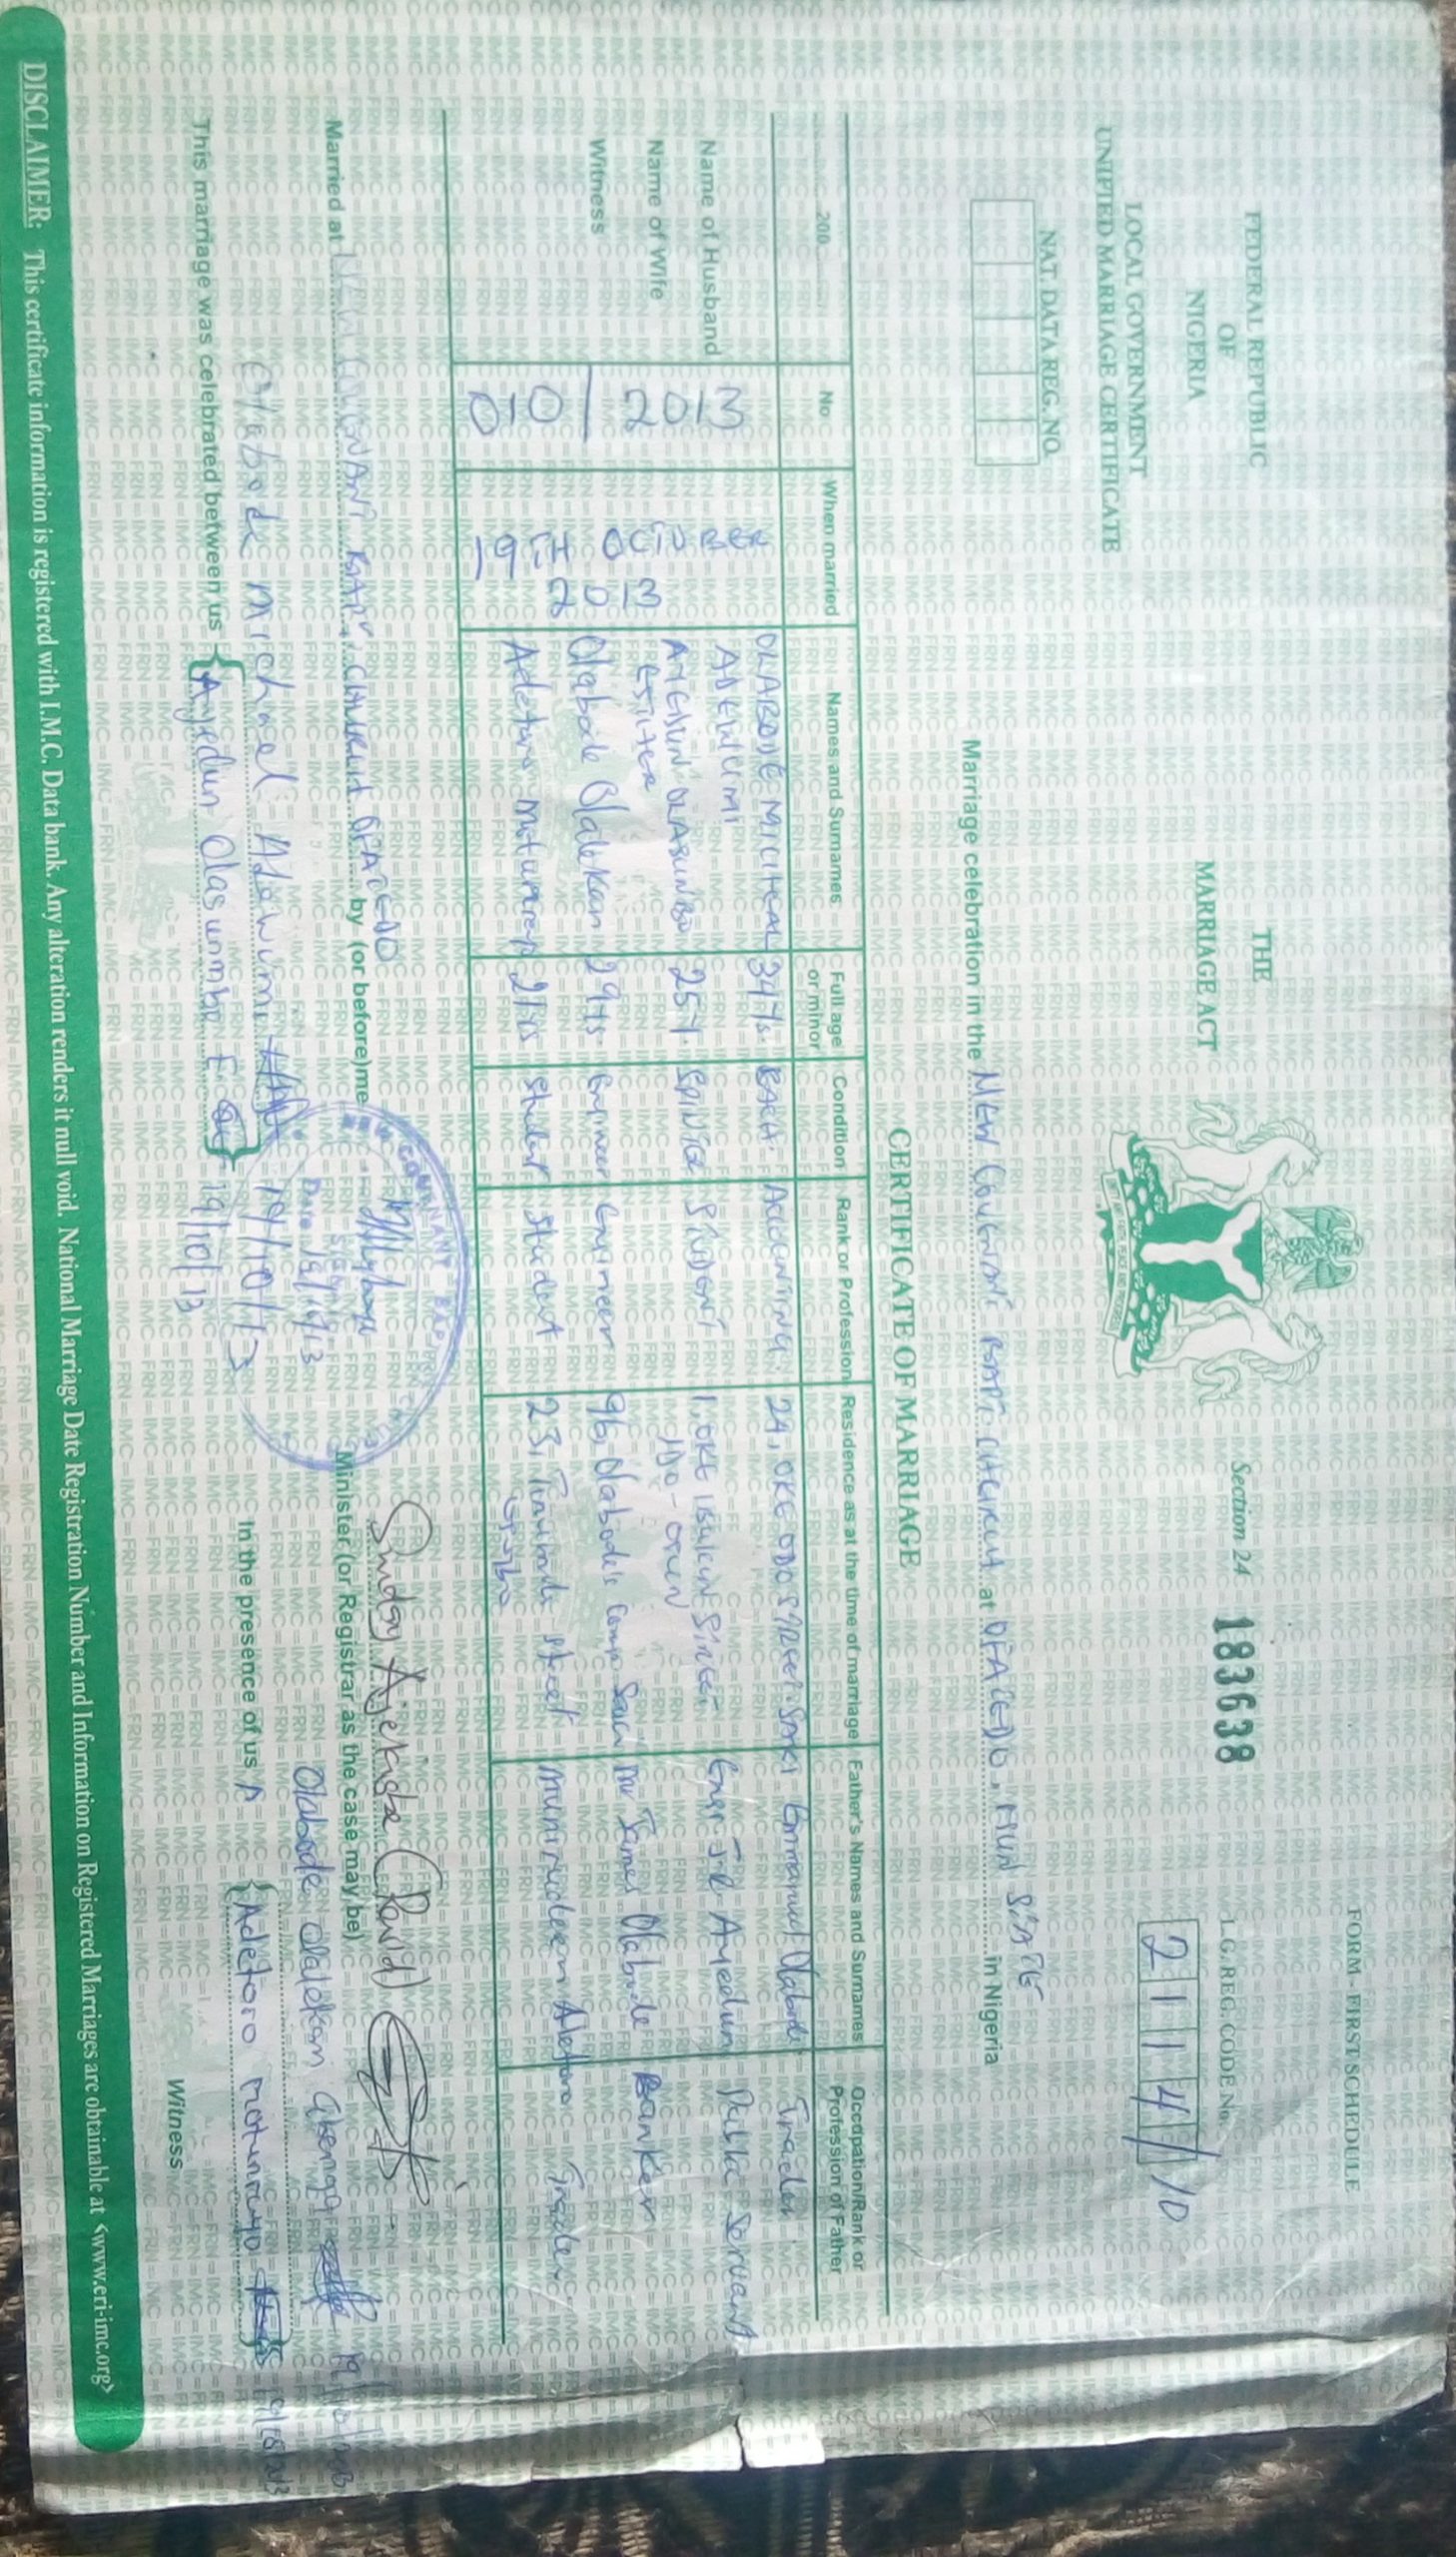 FORM - FIRST SCHEDULE
FEDERAL REPUBLIC
OF
NIGERIA
THE
MARRIAGE ACT
Section 24
183638
L.G. REG. CODE No.
2 1 1 4/10
LOCAL GOVERNMENT
UNIFIED MARRIAGE CERTIFICATE
NAT. DATA REG. NO.
Marriage celebration in the NEW COVENANT BAPT. CHURCH at OFATEDO, in Nigeria
CERTIFICATE OF MARRIAGE
200
No
When married
Names and Surnames
Full age or minor
Condition
Rank or Profession
Residence as at the time of marriage
Father's Names and Surnames
Occupation/Rank or Profession of Father
Name of Husband
Name of Wife
Witness
010/2013
19TH OCTOBER
2013
OLABODE MICHEAL ADEWUMI 34 BACH. ACCOUNTING 24, OKE ODO STREET Emmanuel Olabode Trader
AYEDUN OLASUNBO ESTHER 25 STUDENT 1, STREET Engr J.R Ayedun Public Servant
Olabode Olalekan 29 Engineer Engineer 96, Olabode's comp Mr James Olabode Banker
Adetoro Motunrayo 21 Student Student 23, street Munirudeen Adetoro Trader
Married at NEW COVENANT BAPT. CHURCH OFATEDO by (or before)me
NEW COVENANT BAP
Date 19/10/13
Sunday Ajekiste (David)
Minister (or Registrar as the case may be)
This marriage was celebrated between us
Olabode Micheal Adewumi 19/10/13
Ayedun Olasunmbo E 19/10/13
In the presence of us
Olabode Olalekan Gbenga
Adetoro Motunrayo
Witness
DISCLAIMER: This certificate information is registered with I.M.C. Data bank. Any alteration renders it null void. National Marriage Date Registration Number and Information on Registered Marriages are obtainable at <www.eri-imc.org>